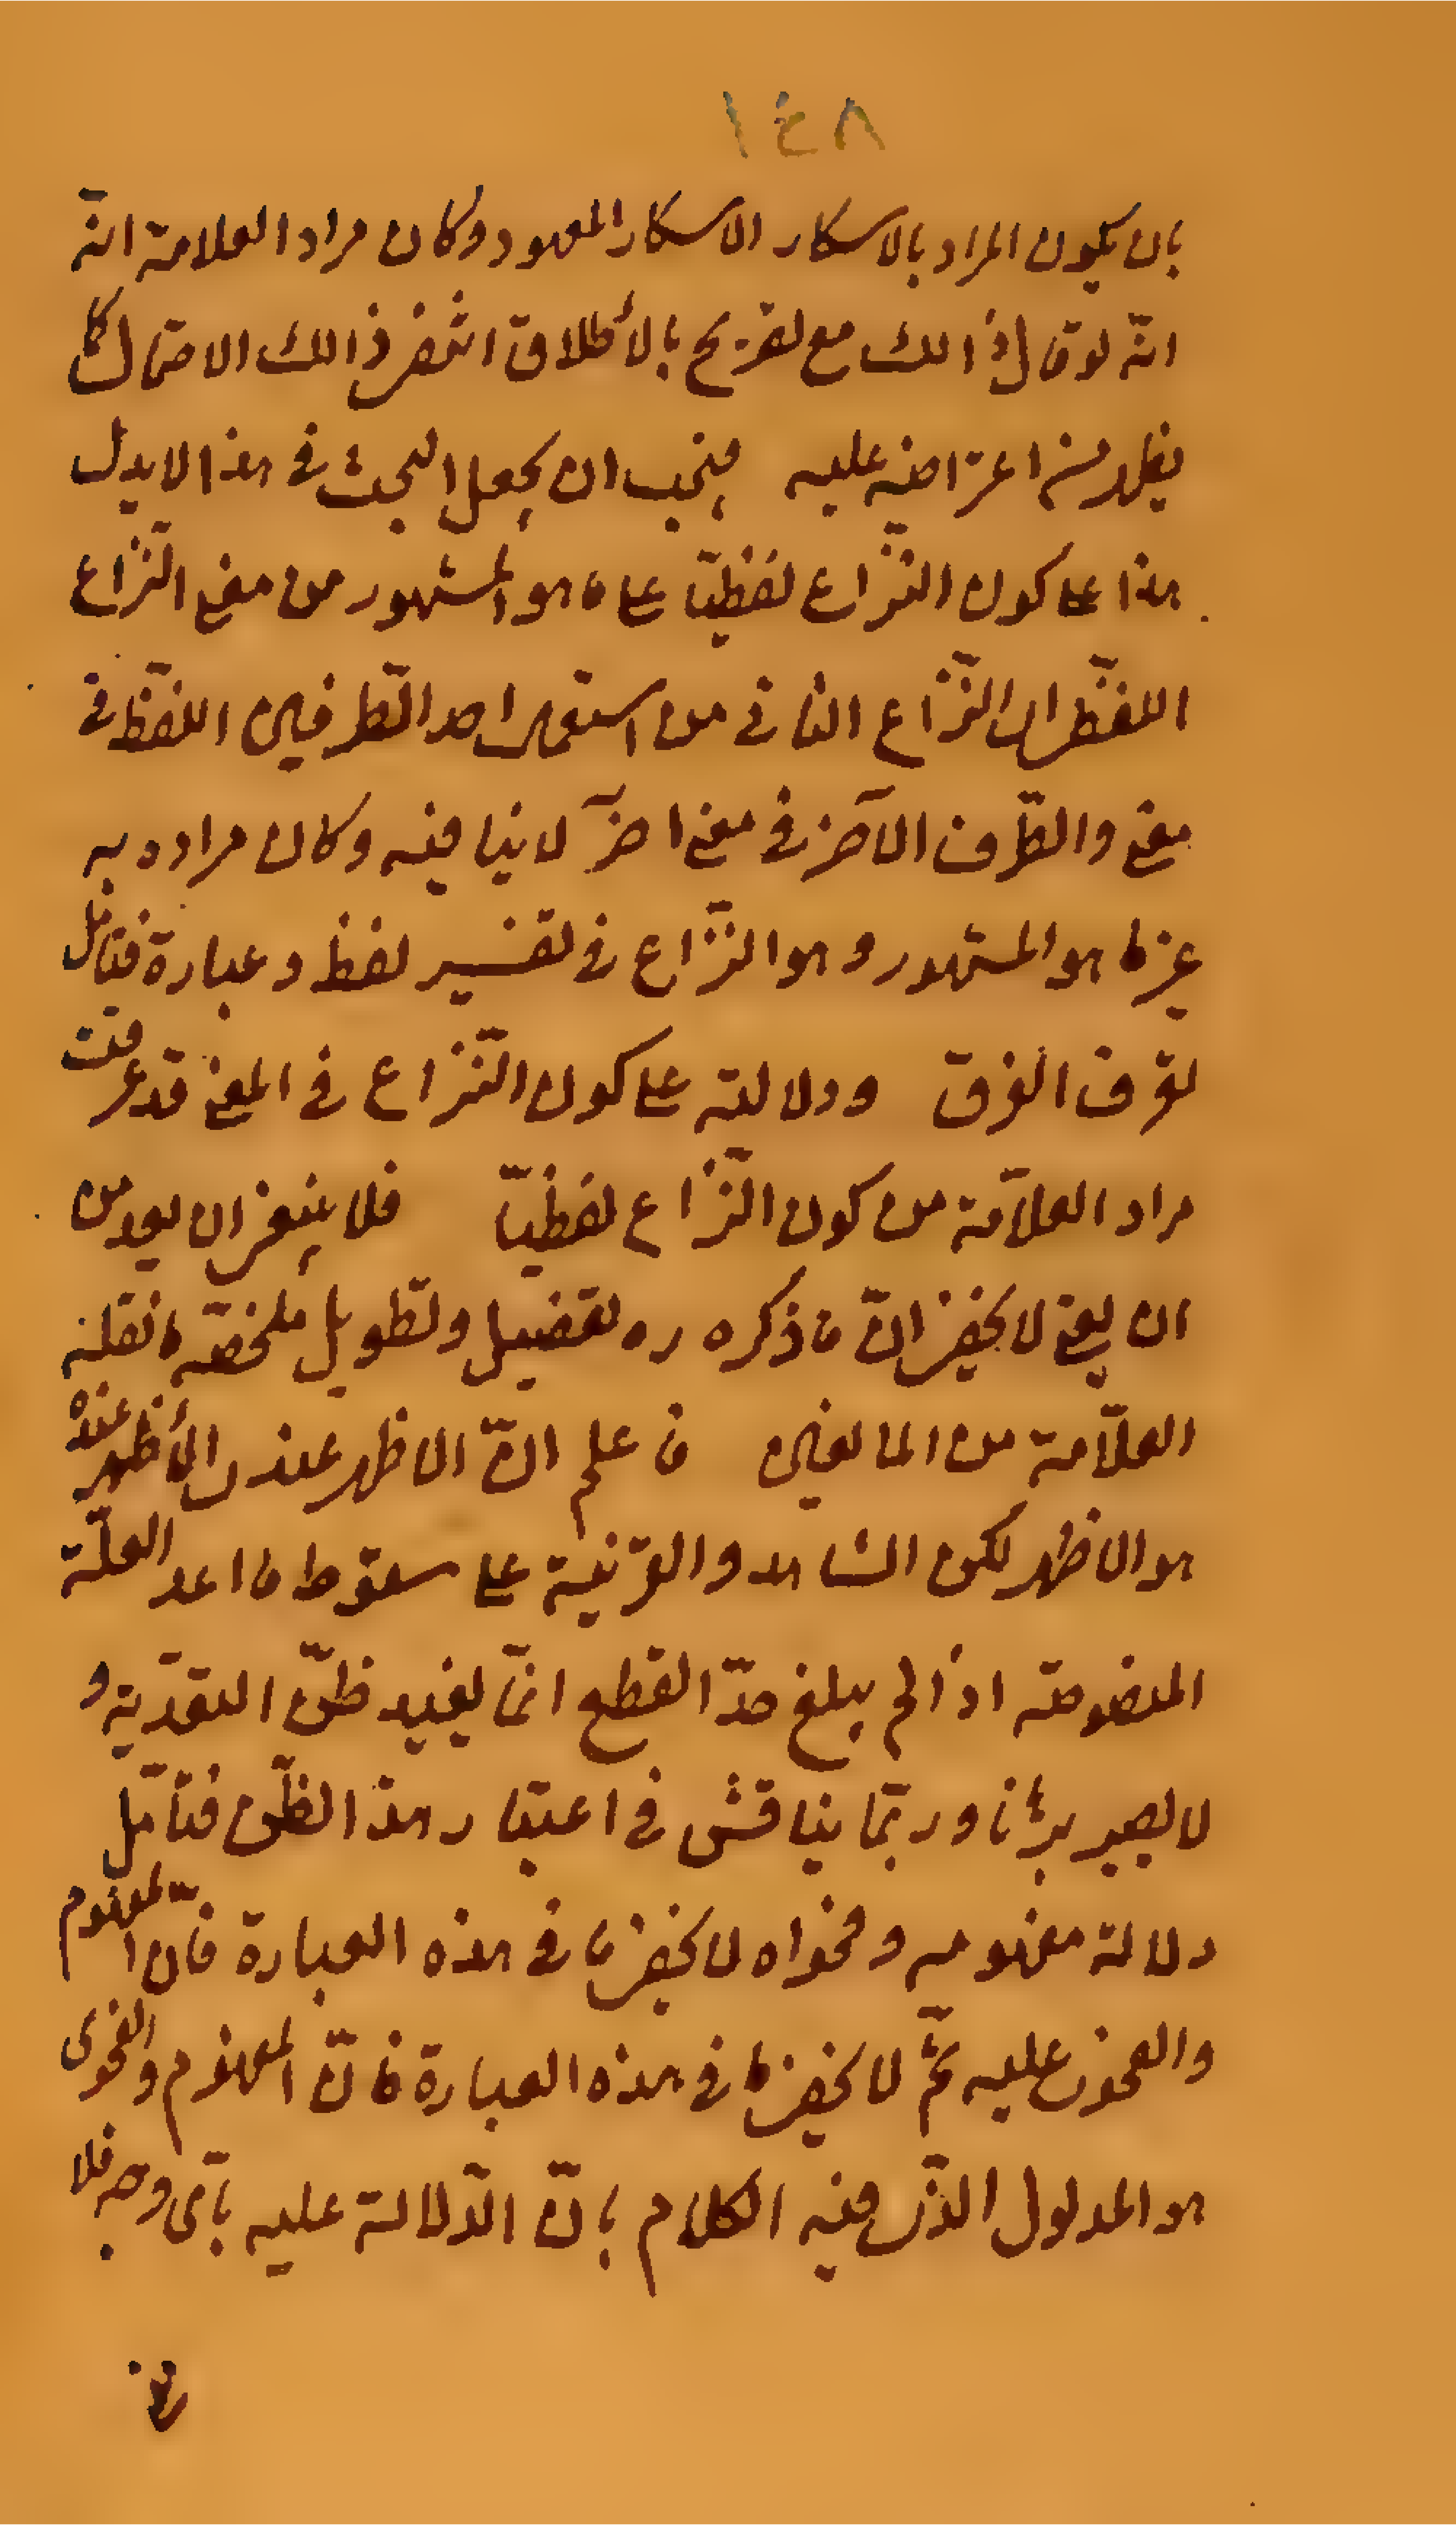 ١٤٨
بان يكون المراد بالاسكار الاسكار المعهود وكان مراد العلامة انّه
انّه لو قال ذالك مع تصريح بالأطلاق انتفى ذالك الاحتمال كما
يظهر من اعتراضه عليه فيجب ان يجعل البحث في هذا لا يدل
هذا على كون النّزاع لفظيّا على ما هو المشهور من معنى النّزاع
اللفظى اى النّزاع الناشى من استعمال احد الطّرفين اللفظ فى
معنى والطّرف الآخر فى معنى اخر لا ينافيه وكان مراده به
غير ما هو المشهور وهو النّزاع فى تفسير لفظ وعبارة فتامل
تعرف الفرق ودلالته على كون النّزاع فى المعنى قد عرفت
مراد العلّامة من كون النّزاع لفظيّا فلا ينبغى ان يعد من
ان يعنى لا يخفى انّ ما ذكره ره تفصيل وتطويل ملخصه ما نقله
العلّامة من المانعين فاعلم انّ الاظهر عندى الأظهر عنده
هو الاظهر لكن الشاهد والقرينة على سقوط ما عد العلّة
المنصوصة اذا لم يبلغ حدّ القطع انّما يفيد ظنّ التعدّية و
لا يصير برهانا وربّما يناقش فى اعتبار هذا الظّن فتأمّل
دلالة مفهومه وفحواه لا يخفى ما فى هذه العبارة فانّ المفهوم
والفحوى عليه ثمّ لا يخفى ما فى هذه العبارة فانّ المفهوم والفحوى
هو المدلول الذى فيه الكلام بانّ الدّلالة عليه بأىّ وجه فلا